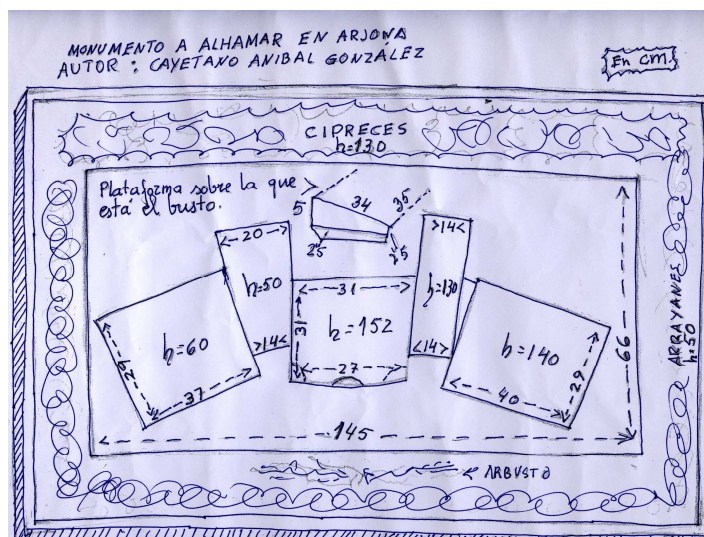 MONUMENTO A ALHAMAR EN ARJONA
AUTOR : CAYETANO ANIBAL GONZÁLEZ
En CM.
CIPRECES
h=130
Plataforma sobre la que
está el busto.
5
34
35
25
25
20
14
h=50
14
31
31
h=152
27
14
h=130
14
h=60
29
37
h=140
40
29
66
145
ARRAYANES
h=50
ARBUSTO